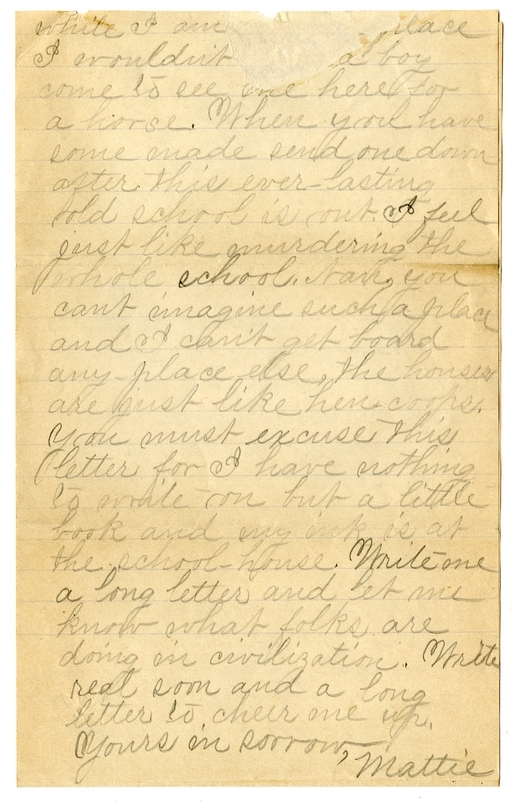 while I am place
I wouldn't a boy
come to see me here for
a horse. When you have
some made send one down
after this ever-lasting
old school is out. I feel
just like murdering the
whole school. Nan, you
cant imagine such a place
and I can't get board
any-place else, the houses
are just like hen-coops.
You must excuse this
letter for I have nothing
to write on but a little
book and my ink is at
the school-house. Write me
a long letter and let me
know what folks are
doing in civilization. Write
real soon and a long
letter to cheer me up.
Yours in sorrow,
Mattie